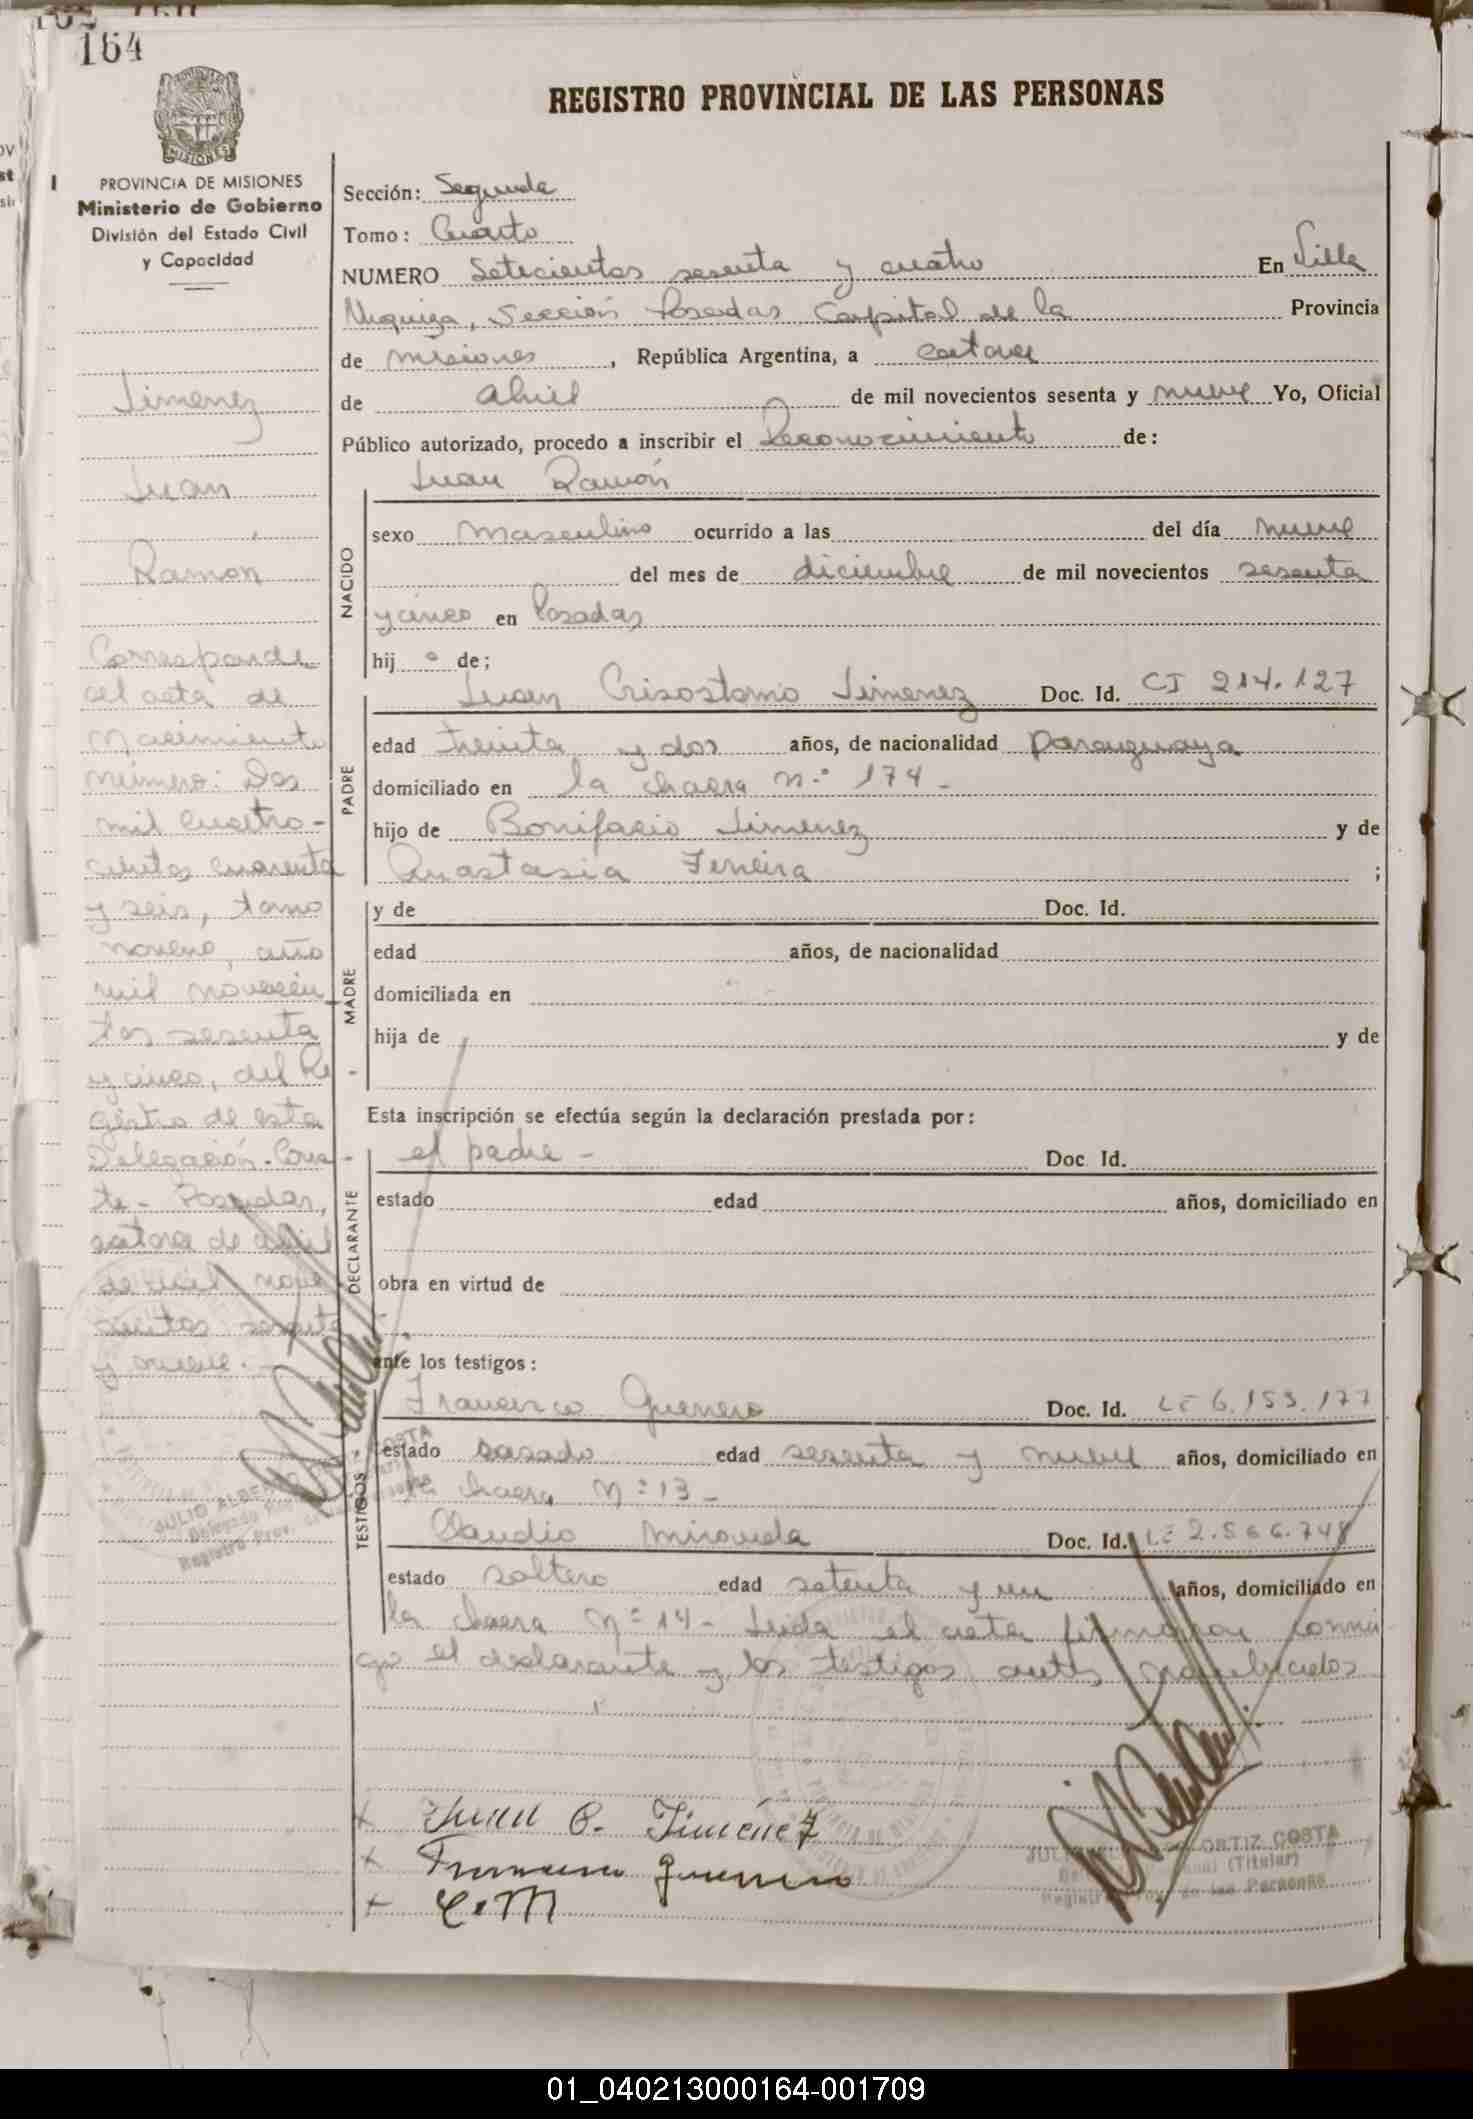 164
REGISTRO PROVINCIAL DE LAS PERSONAS
MISIONES
PROVINCIA DE MISIONES
Ministerio de Gobierno
División del Estado Civil
y Capacidad
Jimenez
Juan
Ramon
Corresponde
al acta de
Nacimiento
número: Dos
mil cuatro-
cientos cuarenta
y seis, tomo
noveno, año
mil novecien-
tos sesenta
y cinco, del Re-
gistro de esta
Delegación. Cons-
te - Posadas,
catorce de abril
de mil nove-
cientos sesenta
y nueve. -
Sección: Segunda
Tomo: Cuarto
NUMERO Setecientos sesenta y cuatro En Villa
Urquiza, Sección Posadas Capital de la Provincia
de Misiones, República Argentina, a catorce
de abril de mil novecientos sesenta y nueve Yo, Oficial
Público autorizado, procedo a inscribir el Reconocimiento de:
NACIDO
Juan Ramón
sexo Masculino ocurrido a las del día nueve
del mes de diciembre de mil novecientos sesenta
y cinco en Posadas
hij o de;
PADRE
Juan Crisostomo Jimenez Doc. Id. CI 214.127
edad treinta y dos años, de nacionalidad paraguaya
domiciliado en la chacra n.º 174 -
hijo de Bonifacio Jimenez y de
Anastasia Ferreira ;
MADRE
y de Doc. Id.
edad años, de nacionalidad
domiciliada en
hija de y de
Esta inscripción se efectúa según la declaración prestada por:
DECLARANTE
el padre - Doc. Id.
estado edad años, domiciliado en
obra en virtud de
ante los testigos:
TESTIGOS
Francisco Guerrero Doc. Id. LE 6.153.177
estado casado edad sesenta y nueve años, domiciliado en
la chacra Nº 13 -
Claudio Miranda Doc. Id. LE 2.566.748
estado soltero edad setenta y un años, domiciliado en
la chacra Nº 14 - Leida el acta firmaron conmi-
go el declarante y los testigos antes nombrados
x Juan C. Jiménez
x Francisco Guerrero
x C. M
ORTIZ COSTA
(Titular)
de las Personas
JULIO ALBE
Delegado
Registro Prov. de
01_040213000164-001709